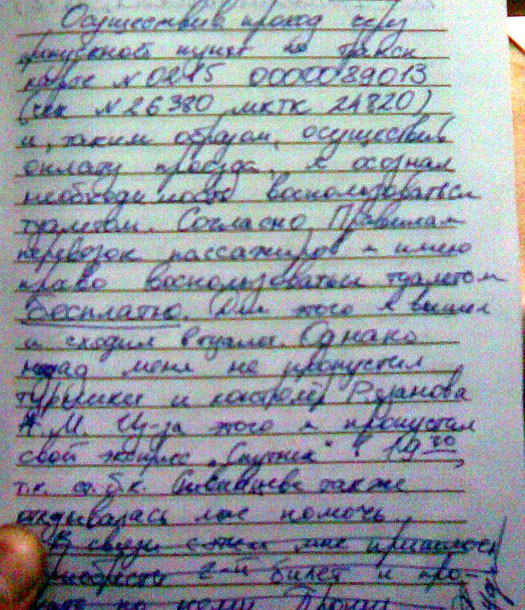 Осуществив проход через
пропускной пункт по трансп
карте №0245 0000089013
(чек №26380 МКТК 24820)
и, таким образом, осуществив
оплату проезда, я осознал
необходимость воспользоваться
туалетом. Согласно Правилам
перевозок пассажиров я имею
право воспользоваться туалетом
бесплатно. Для этого я вышел
и сходил в туалет. Однако
назад меня не пропустил
турникет и контролёр Рязанова
А.М. Из-за этого я пропустил
свой экспресс „Спутник" в 19 30,
т.к. ст. б.к. также
отказывалась мне помочь
В связи с этим мне пришлось
приобрести 2-й билет и про-
по нему